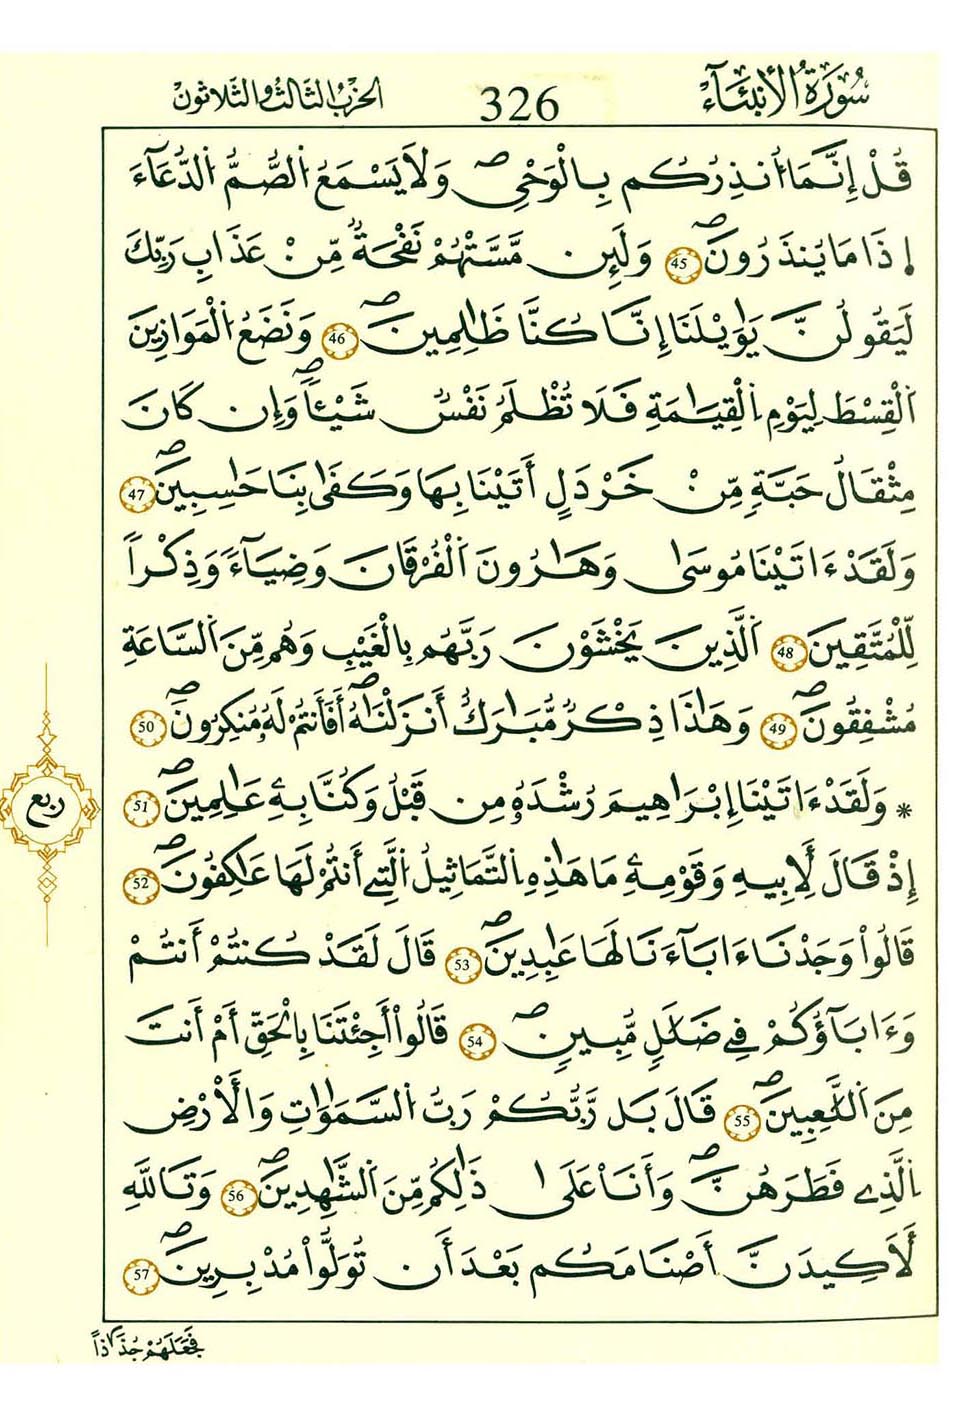 سُورَةُ الأَنبِيَآءِ 326 الحزب الثالث والثلاثون
قُلِ إِنَّمَا أُنذِرُكُم بِالْوَحْيِ صـ وَلَا يَسْمَعُ اُلصُّمُّ اُلدُّعَآءَ
إِذَا مَا يُنذَرُونَ صـ 45 وَلَئِن مَّسَّتْهُمْ نَفْحَةٌ مِّنْ عَذَابِ رَبِّكَ
لَيَقُولُنَّ يَٰوَيْلَنَا إِنَّا كُنَّا ظَٰلِمِينَ صـ 46 وَنَضَعُ اُلْمَوَازِينَ
اَلْقِسْطَ لِيَوْمِ اِلْقِيَٰمَةِ فَلَا تُظْلَمُ نَفْسٌ شَيْـٔاً صـ وَإِن كَانَ
مِثْقَالُ حَبَّةٍ مِّنْ خَرْدَلٍ أَتَيْنَا بِهَا وَكَفَىٰ بِنَا حَٰسِبِينَ صـ 47
وَلَقَدْ ءَاتَيْنَا مُوسَىٰ وَهَٰرُونَ اَلْفُرْقَانَ وَضِيَآءً وَذِكْراً
لِّلْمُتَّقِينَ 48 اَلَّذِينَ يَخْشَوْنَ رَبَّهُم بِالْغَيْبِ وَهُم مِّنَ اَلسَّاعَةِ
مُشْفِقُونَ صـ 49 وَهَٰذَا ذِكْرٌ مُّبَٰرَكٌ أَنزَلْنَٰهُ صـ أَفَأَنتُمْ لَهُۥ مُنكِرُونَ صـ 50
* وَلَقَدْ ءَاتَيْنَا إِبْرَٰهِيمَ رُشْدَهُۥ مِن قَبْلُ وَكُنَّا بِهِۦ عَٰلِمِينَ صـ 51
إِذْ قَالَ لِأَبِيهِ وَقَوْمِهِۦ مَا هَٰذِهِ اِلتَّمَاثِيلُ اُلَّتِے أَنتُمْ لَهَا عَٰكِفُونَ صـ 52
قَالُواْ وَجَدْنَا ءَابَآءَنَا لَهَا عَٰبِدِينَ صـ 53 قَالَ لَقَدْ كُنتُمْ أَنتُمْ
وَءَابَآؤُكُمْ فِے ضَلَٰلٍ مُّبِينٍ صـ 54 قَالُواْ أَجِئْتَنَا بِالْحَقِّ أَمْ أَنتَ
مِنَ اَللَّٰعِبِينَ صـ 55 قَالَ بَل رَّبُّكُمْ رَبُّ اُلسَّمَٰوَٰتِ وَالْأَرْضِ
اِلَّذِے فَطَرَهُنَّ صـ وَأَنَا عَلَىٰ ذَٰلِكُم مِّنَ اَلشَّٰهِدِينَ صـ 56 وَتَاللَّهِ
لَأَكِيدَنَّ أَصْنَٰمَكُم بَعْدَ أَن تُوَلُّواْ مُدْبِرِينَ صـ 57
ربع
فَجَعَلَهُمْ جُذَٰذاً